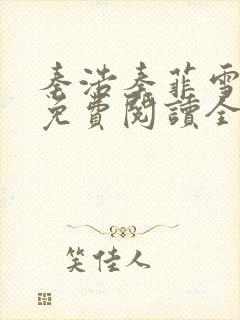 秦浩秦菲雪
免費閱讀全
笑佳人